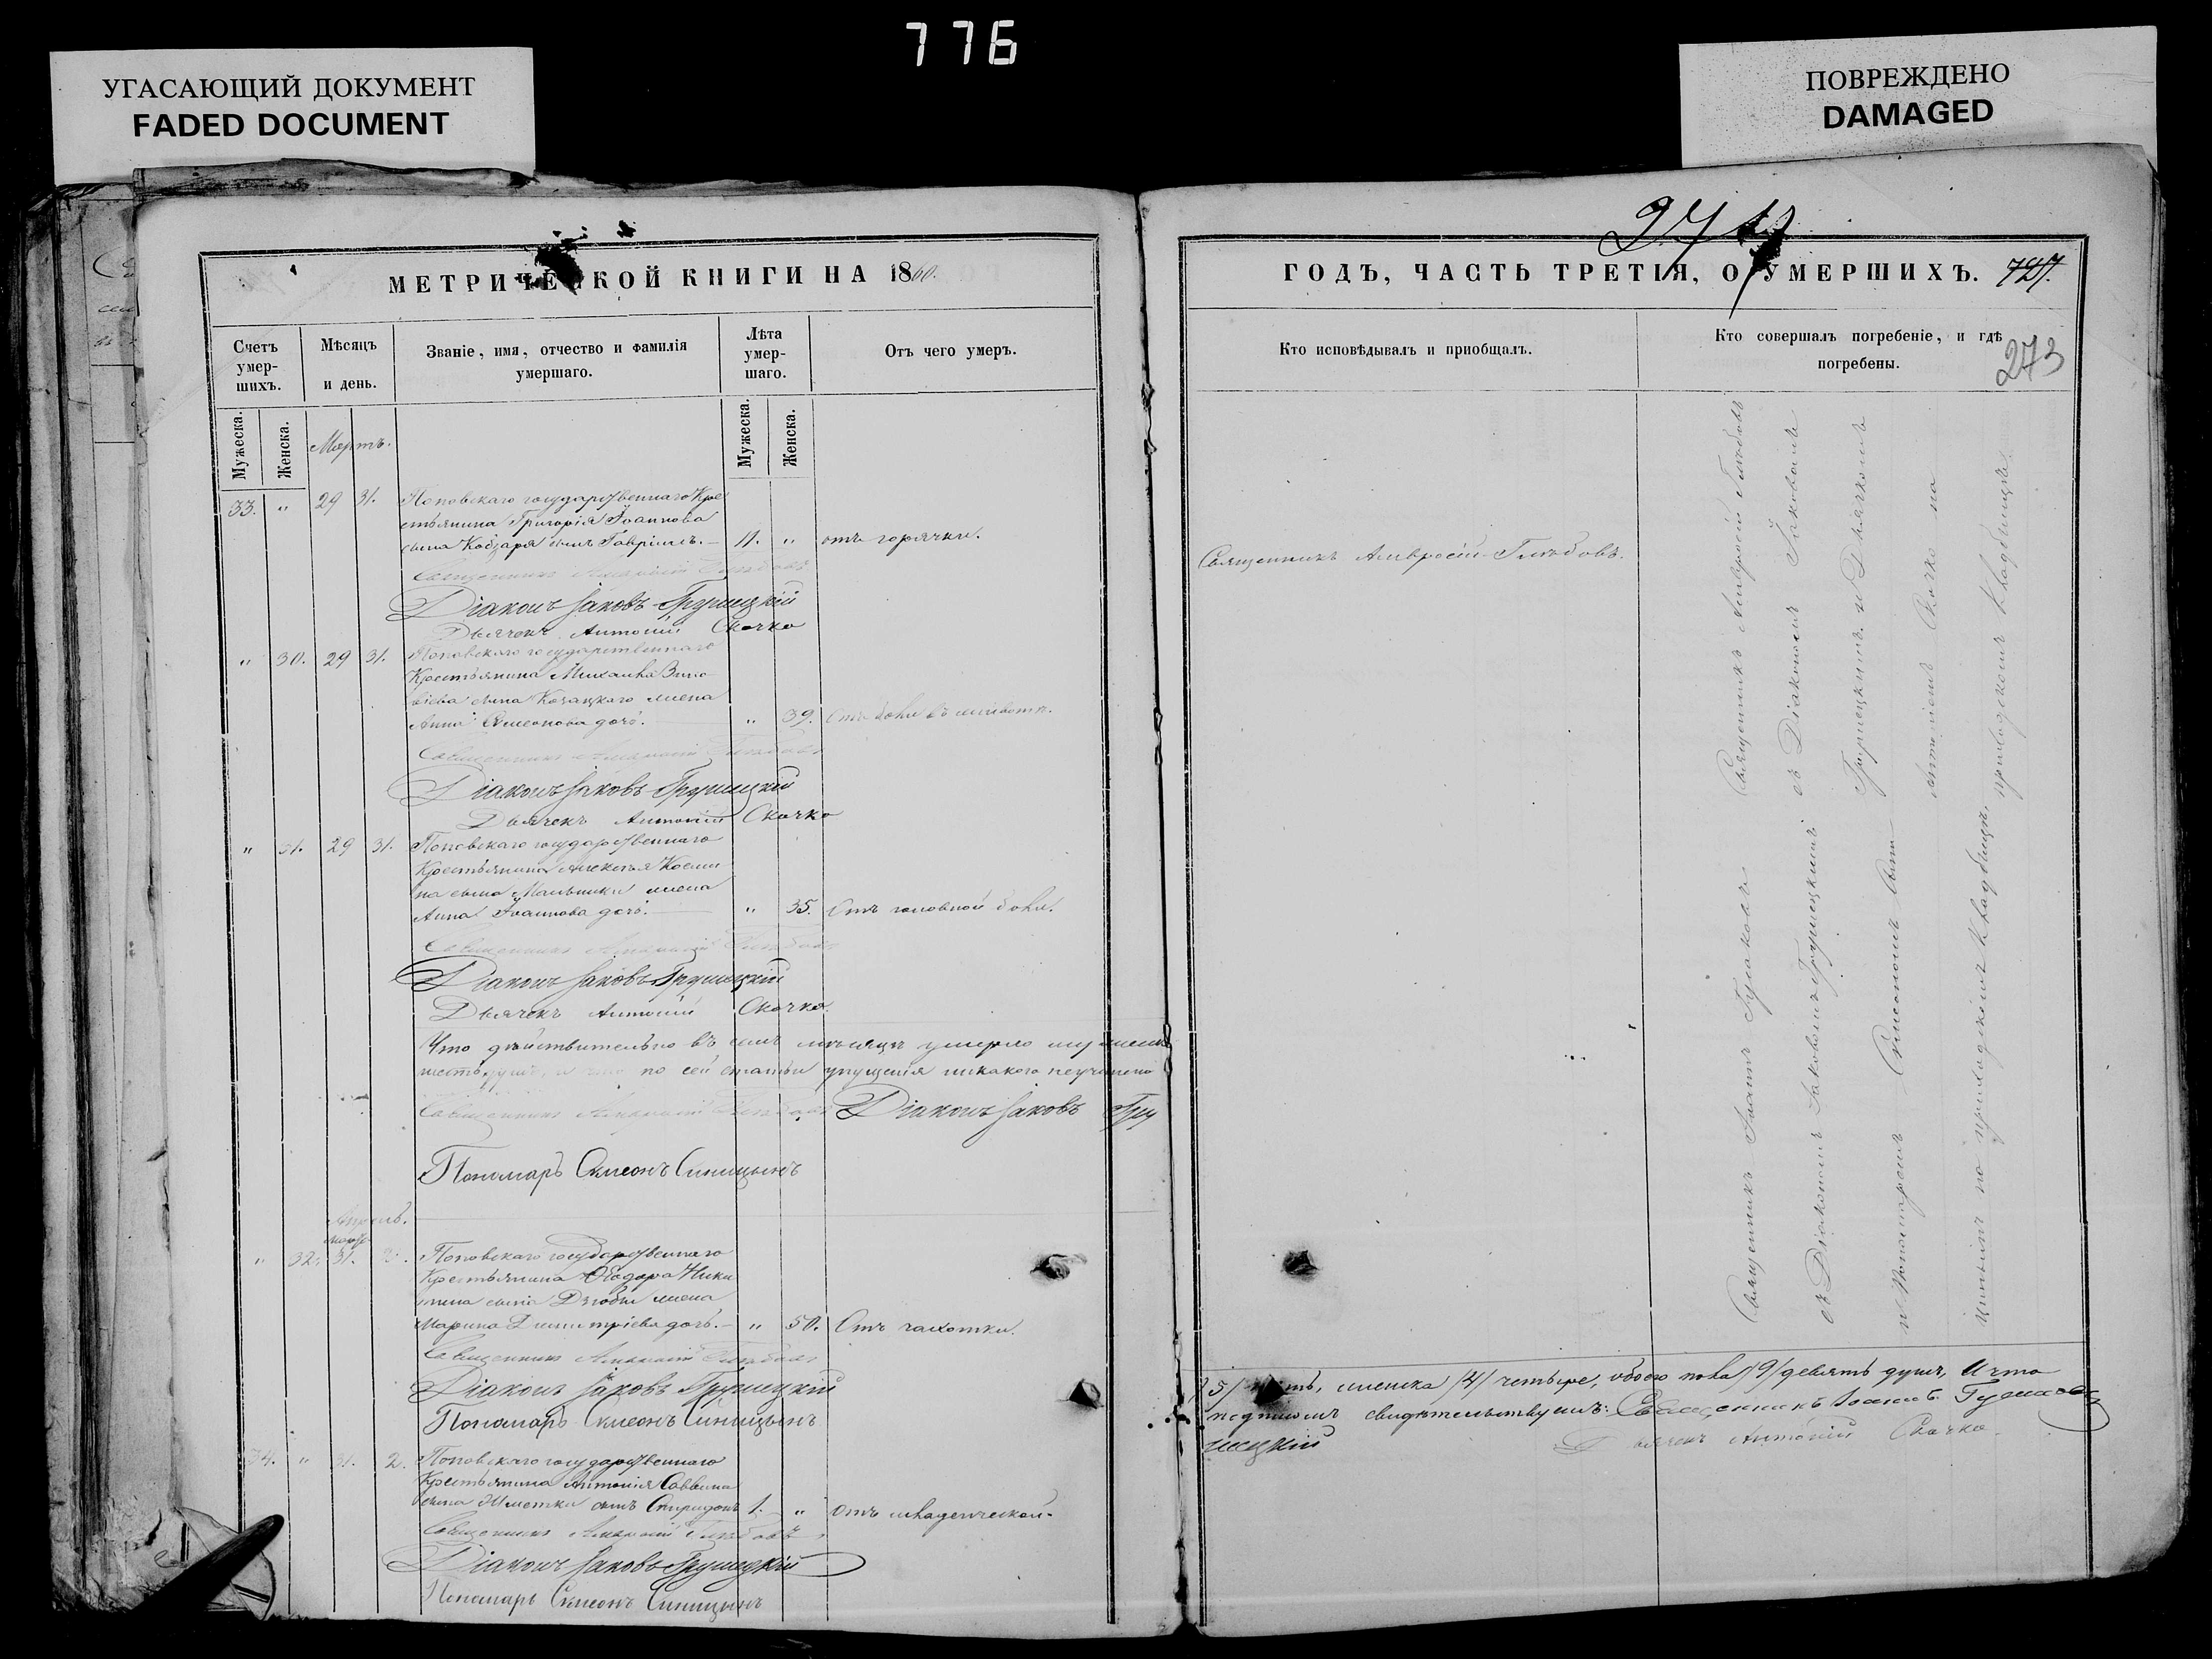 776
УГАСАЮЩИЙ ДОКУМЕНТ
FADED DOCUMENT
ПОВРЕЖДЕНО
DAMAGED
МЕТРИЧЕСКОЙ КНИГИ НА 1860.
Счетъ умер-
шихъ.
Мѣсяцъ
и день.
Званіе, имя, отчество и фамилія
умершаго.
Лѣта
умер-
шаго.
Отъ чего умеръ.
Мужеска.
Женска.
Мартъ.
Мужеска.
Женска.
33. " 29 31. Поповскаго государственнаго Кре
стьянина Григорія Іоаннова
сына Кобзаря сынъ Гавріилъ. 11. " отъ горячки.
Священникъ Амвросій Глѣбовъ
Діаконъ Іаковъ Грушецкій
Дьячекъ Антоній Скочко
" 30. 29 31. Поповскаго государственнаго
Крестьянина Михаила Зино
віева сына жена
Анна Симеонова дочь. " 39. Отъ боли въ животѣ.
Священникъ Амвросій Глѣбовъ
Діаконъ Іаковъ Грушецкій
Дьячекъ Антоній Скочко
" 31. 29 31. Поповскаго государственнаго
Крестьянина Алексѣя Косми
на сына Мельники жена
Анна Іоаннова дочь. " 35. Отъ головной боли.
Священникъ Амвросій Глѣбовъ
Діаконъ Іаковъ Грушецкій
Дьячекъ Антоній Скочко.
Что дѣйствительно въ семъ мѣсяцѣ умерло мужеска
по сей статьи упущенія никакого неучинено
Священникъ Амвросій Глѣбовъ Діаконъ Іаковъ Гру
Пономарь Симеонъ Синицынъ
Апрель.
Март
" 32. 31. 2. Поповскаго государственнаго
Крестьянина Ѳеодора Ники
тина сына Дзюбы жена
Марина Димитріева дочь. " 50. Отъ чахотки.
Священникъ Амвросій Глѣбовъ
Діаконъ Іаковъ Грушецкій
Пономарь Симеонъ Синицынъ
34. " 31. 2. Поповскаго государственнаго
Крестьянина Антонія Саввина
сына сынъ Спиридонъ 1. " отъ младенческой.
Священникъ Амвросій Глѣбовъ
Діаконъ Іаковъ Грушецкій
Пономарь Симеонъ Синицынъ
ГОДЪ, ЧАСТЬ ТРЕТІЯ, О УМЕРШИХЪ. 727.
273
Кто исповѣдывалъ и приобщалъ.
Кто совершалъ погребеніе, и гдѣ
погребены.
Священникъ Амвросій Глѣбовъ.
Священникъ Амвросій Глѣбовъ
съ Діакономъ Іаковомъ
Грушецкимъ и Дьячкомъ
Антоніемъ Скочко на
приходскомъ кладбищѣ.
Священникъ Іоаннъ Гудимовъ
съ Діакономъ Іаковомъ Грушецкимъ
и Пономаремъ Симеономъ Сини
цынымъ на приходскомъ кладбищѣ.
/5/ пять, женска /4/ четыре, обоего пола /9/ девять душъ, и что
подписомъ свидѣтельствуемъ: Священникъ Іоаннъ Гудимовъ
шецкій Дьячекъ Антоній Скочко.